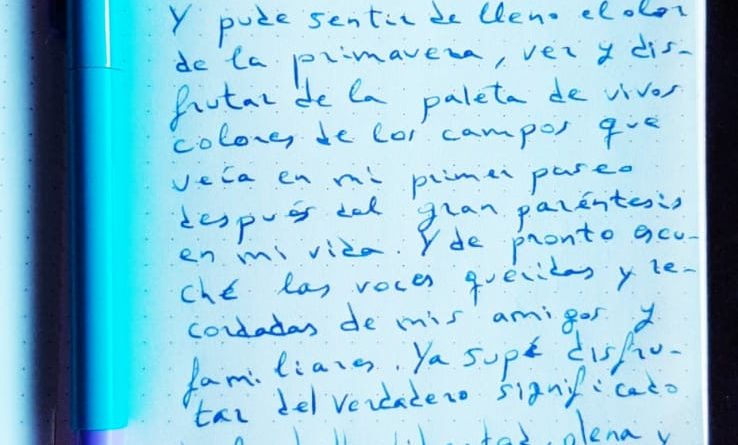 Y pude sentir de lleno el olor
de la primavera, ver y dis-
frutar de la paleta de vivos
colores de los campos que
veía en mi primer paseo
después del gran paréntesis
en mi vida. Y de pronto escu-
ché las voces queridas y re-
cordadas de mis amigos y
familiares. Ya supe disfru-
tar del verdadero significado
plena y